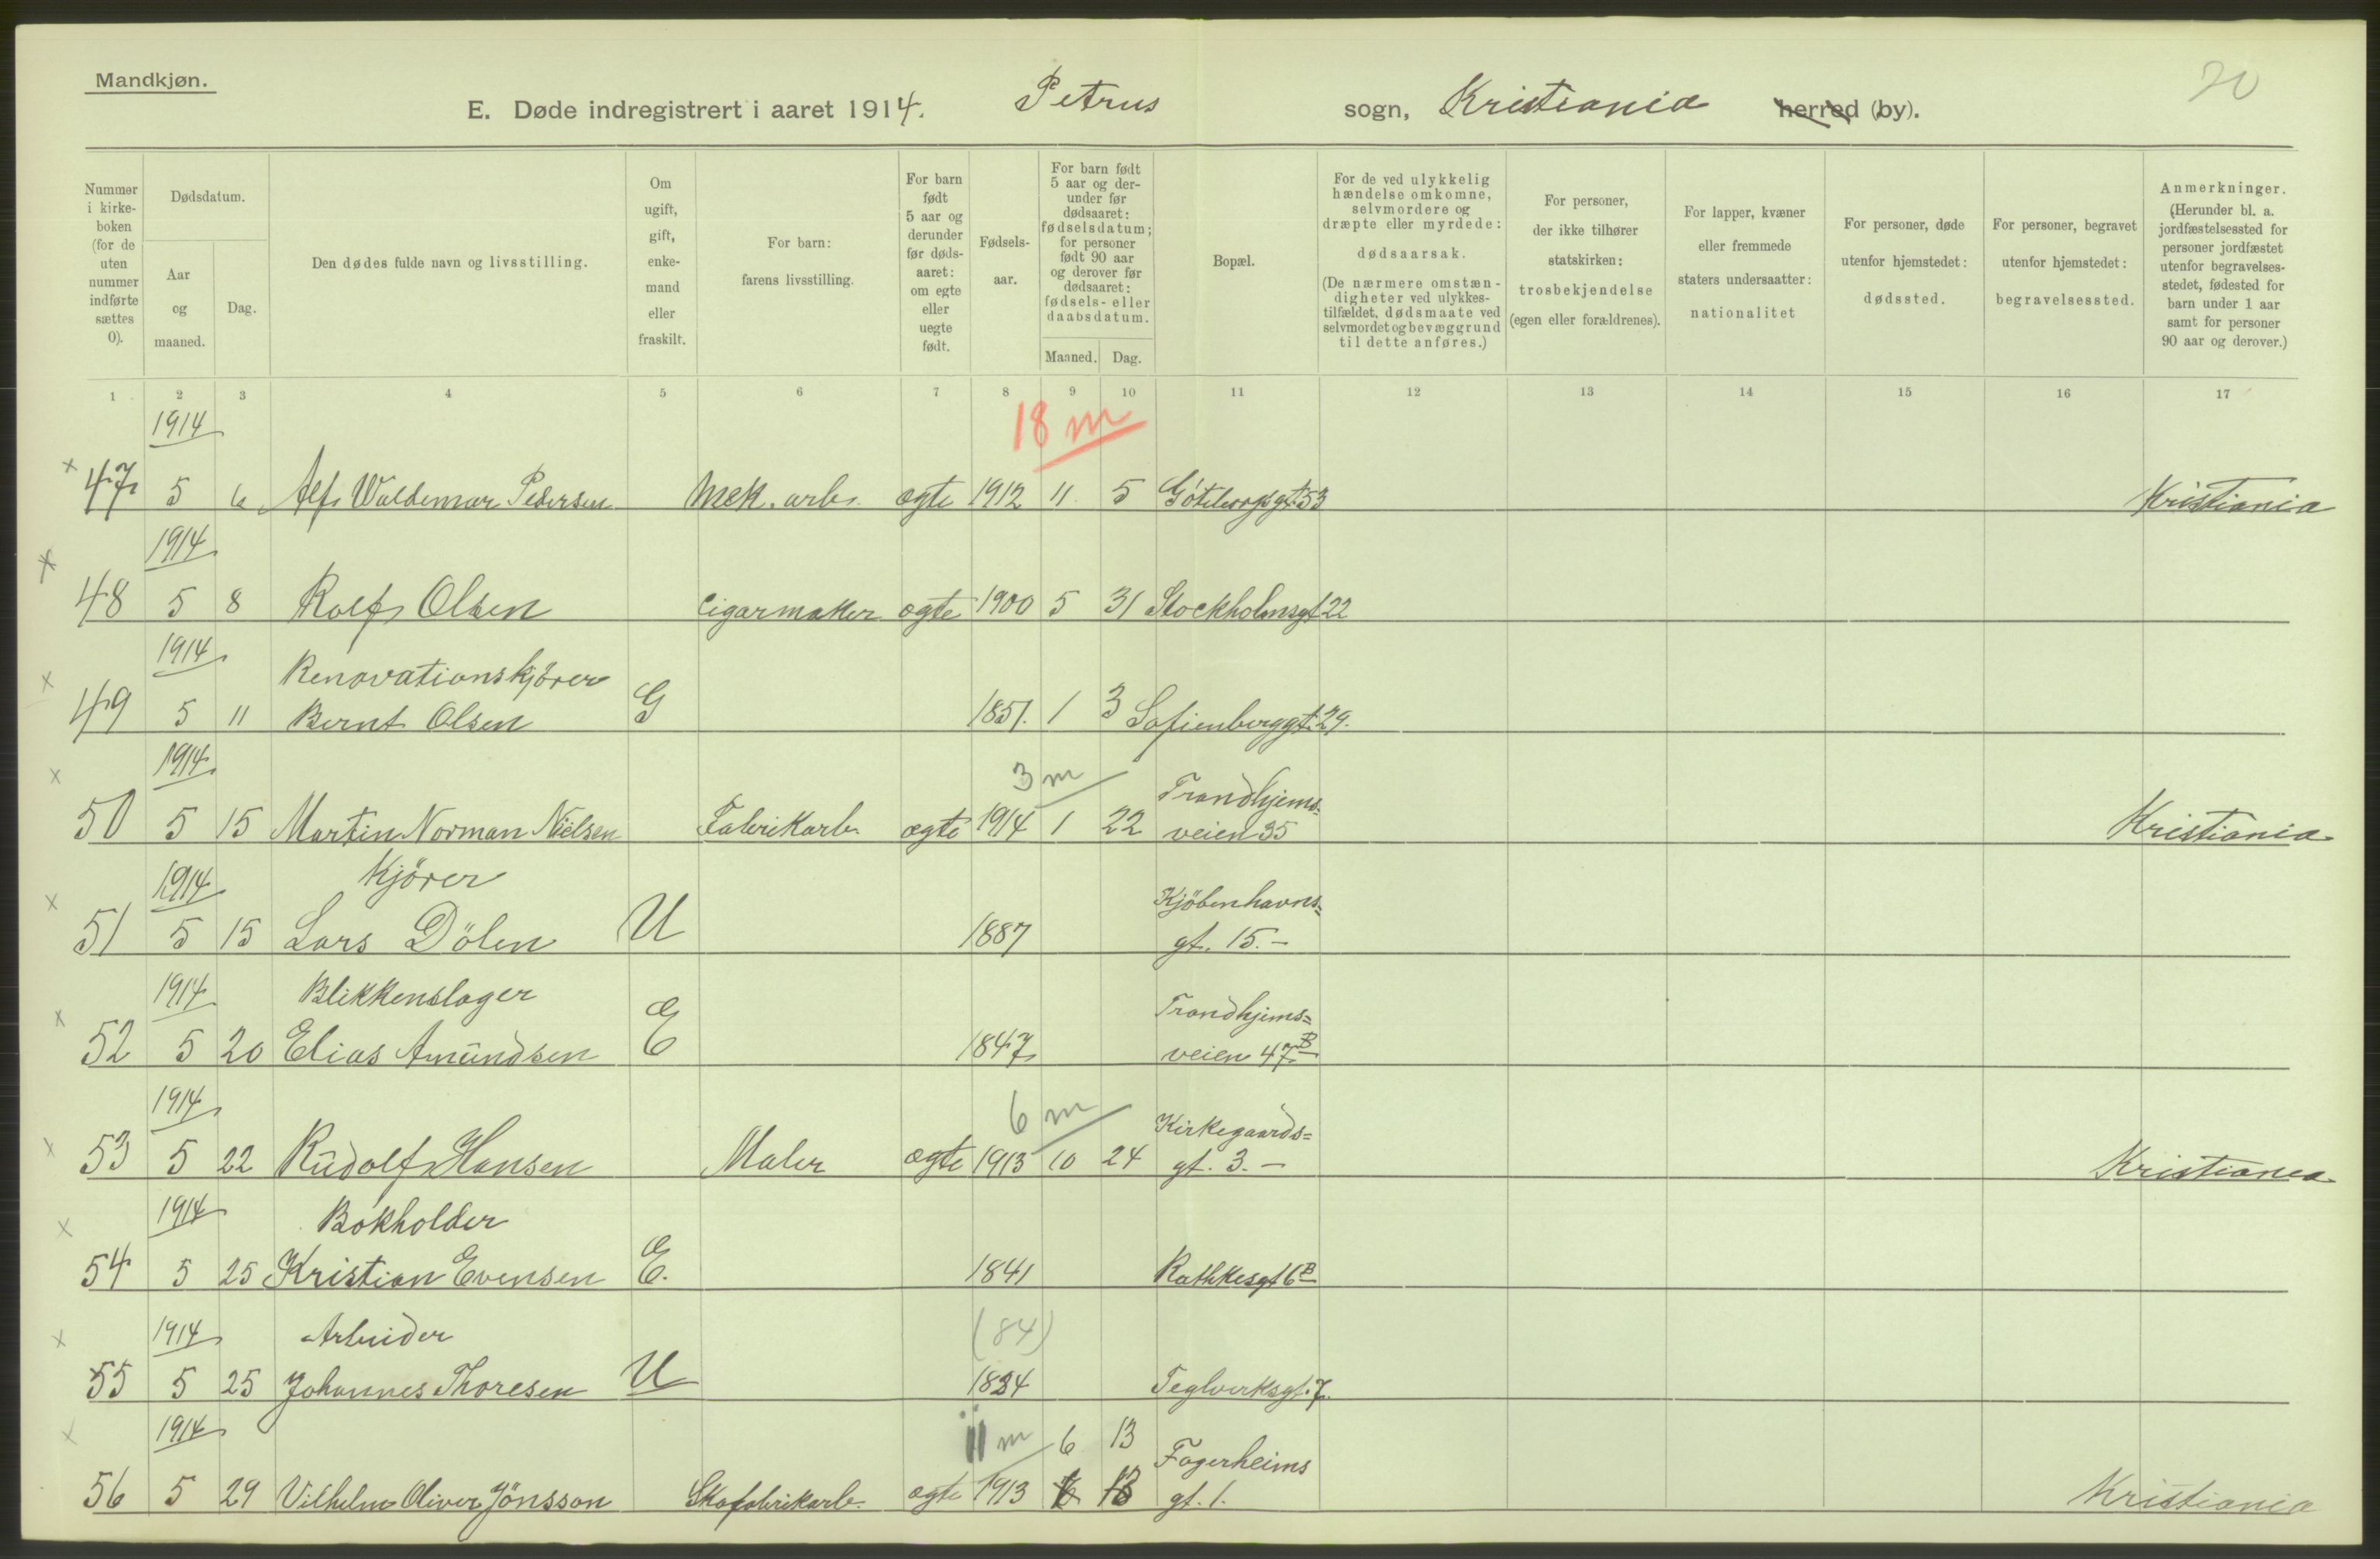 Mandkjøn.
20
E. Døde indregistrert i aaret 1914. Petrus sogn, Kristiania herred (by).
Nummer i kirke-boken (for de uten nummer indførte sættes 0).
Dødsdatum.
Aar og maaned.
Dag.
Den dødes fulde navn og livsstilling.
Om ugift, gift, enke-mand eller fraskilt.
For barn: farens livsstilling.
For barn født 5 aar og derunder før døds-aaret: om egte eller uegte født.
Fødsels-aar.
For barn født 5 aar og der-under før dødsaaret: fødselsdatum; for personer født 90 aar og derover før dødsaaret: fødsels- eller daabsdatum.
Maaned. Dag.
Bopæl.
For de ved ulykkelig hændelse omkomne, selvmordere og dræpte eller myrdede: dødsaarsak. (De nærmere omstæn-digheter ved ulykkes-tilfældet, dødsmaate ved selvmordet og bevæggrund til dette anføres.)
For personer, der ikke tilhører statskirken: trosbekjendelse (egen eller forældrenes).
For lapper, kvæner eller fremmede staters undersaatter: nationalitet
For personer, døde utenfor hjemstedet: dødssted.
For personer, begravet utenfor hjemstedet: begravelsessted.
Anmerkninger. (Herunder bl. a. jordfæstelsessted for personer jordfæstet utenfor begravelses-stedet, fødested for barn under 1 aar samt for personer 90 aar og derover.)
1 2 3 4 5 6 7 8 9 10 11 12 13 14 15 16 17
1914 18 m
x 47 5 6 Alf Waldemar Pedersen Mek. arb. ægte 1912 11 5 Göteborggt. 53 Kristiania
1914
x 48 5 8 Rolf Olsen Cigarmaker ægte 1900 5 31 Stockholmsgt 22
1914 Renovationskjörer
x 49 5 11 Bernt Olsen G 1851. 1 3 Sofienberggt. 29.
1914 3 m Trondhjems=
x 50 5 15 Martin Norman Nielsen Fabrikarb. ægte 1914 1 22 veien 35 Kristiania
1914 Kjörer Kjöbenhavns=
x 51 5 15 Lars Dölen U 1887 gt. 15. –
1914 Blikkenslager Trondhjems=
x 52 5 20 Elias Amundsen E 1847 veien 47 B
1914 6 m Kirkegaards=
x 53 5 22 Rudolf Hansen Maler ægte 1913 10 24 gt. 3. – Kristiania
1914 Bokholder
x 54 5 25 Kristian Evensen E. 1841 Rathkesgt 6 B
1914 Arbeider (84)
x 55 5 25 Johannes Thoresen U 1834 Teglverksgt. 7.
1914 11 m 6 13 Fagerheims
x 56 5 29 Vilhelm Oliver Jönsson Skofabrikarb. ægte 1913 6 13 gt. 1. Kristiania